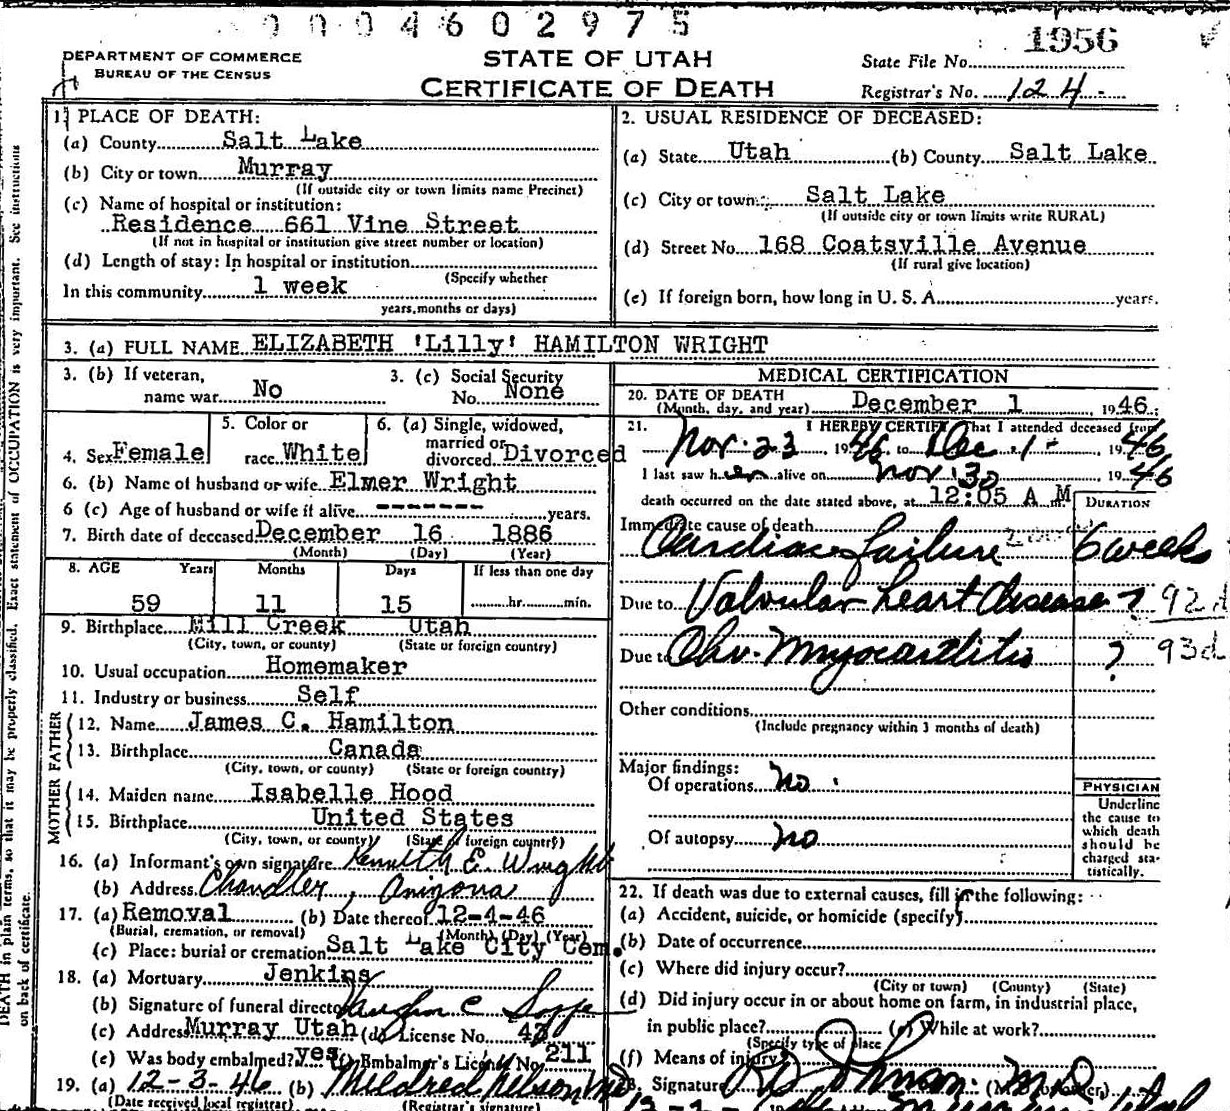 0004602975
1956
DEPARTMENT OF COMMERCE
BUREAU OF THE CENSUS
STATE OF UTAH
CERTIFICATE OF DEATH
State File No.
Registrar's No. 124
1. PLACE OF DEATH:
(a) County Salt Lake
(b) City or town Murray
(If outside city or town limits name Precinct)
(c) Name of hospital or institution:
Residence 661 Vine Street
(If not in hospital or institution give street number or location)
(d) Length of stay: In hospital or institution
(Specify whether
In this community 1 week
years, months or days)
2. USUAL RESIDENCE OF DECEASED:
(a) State Utah (b) County Salt Lake
(c) City or town Salt Lake
(If outside city or town limits write RURAL)
(d) Street No. 168 Coatsville Avenue
(If rural give location)
(e) If foreign born, how long in U. S. A. years.
3. (a) FULL NAME ELIZABETH 'Lilly' HAMILTON WRIGHT
3. (b) If veteran,
name war No
3. (c) Social Security
No. None
4. Sex Female
5. Color or
race White
6. (a) Single, widowed,
married or
divorced Divorced
6. (b) Name of husband or wife Elmer Wright
6 (c) Age of husband or wife if alive ------- years.
7. Birth date of deceased December 16 1886
(Month) (Day) (Year)
8. AGE Years Months Days If less than one day
59 11 15 hr. min.
9. Birthplace Mill Creek Utah
(City, town, or county) (State or foreign country)
10. Usual occupation Homemaker
11. Industry or business Self
FATHER
12. Name James C. Hamilton
13. Birthplace Canada
(City, town, or county) (State or foreign country)
MOTHER
14. Maiden name Isabelle Hood
15. Birthplace United States
(City, town, or county) (State or foreign country)
16. (a) Informant's own signature Kenneth E. Wright
(b) Address Chandler, Arizona
17. (a) Removal (b) Date thereof 12-4-46
(Burial, cremation, or removal) (Month) (Day) (Year)
(c) Place: burial or cremation Salt Lake City Cem.
18. (a) Mortuary Jenkins
(b) Signature of funeral director Vaughn C
(c) Address Murray Utah (d) License No.
(e) Was body embalmed? yes (f) Embalmer's License No. 211
19. (a) 12-3-46 (b) Mildred Nelson
(Date received local registrar) (Registrar's signature)
MEDICAL CERTIFICATION
20. DATE OF DEATH
(Month, day, and year) December 1, 1946
21. I HEREBY CERTIFY That I attended deceased from
Nov. 23 1946 to Dec. 1 -, 1946
I last saw h er alive on Nov. 30 1946
death occurred on the date stated above, at 12:05 A M
DURATION
Immediate cause of death
Cardiac failure 6 weeks
Due to Valvular heart disease ? 92d
Due to Chr. Myocarditis ? 93d
Other conditions
(Include pregnancy within 3 months of death)
Major findings:
Of operations no.
Of autopsy no
PHYSICIAN
Underline
the cause to
which death
should be
charged sta-
tistically.
22. If death was due to external causes, fill in the following:
(a) Accident, suicide, or homicide (specify)
(b) Date of occurrence
(c) Where did injury occur?
(City or town) (County) (State)
(d) Did injury occur in or about home on farm, in industrial place,
in public place? (e) While at work?
(Specify type of place
(f) Means of injury
23. Signature M.D.
DEATH in plain terms, so that it may be properly classified. Exact statement of OCCUPATION is very important. See instructions
on back of certificate.